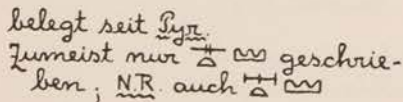 belegt seit Pyr.
Zumeist nur geschrie-
ben; N.R. auch